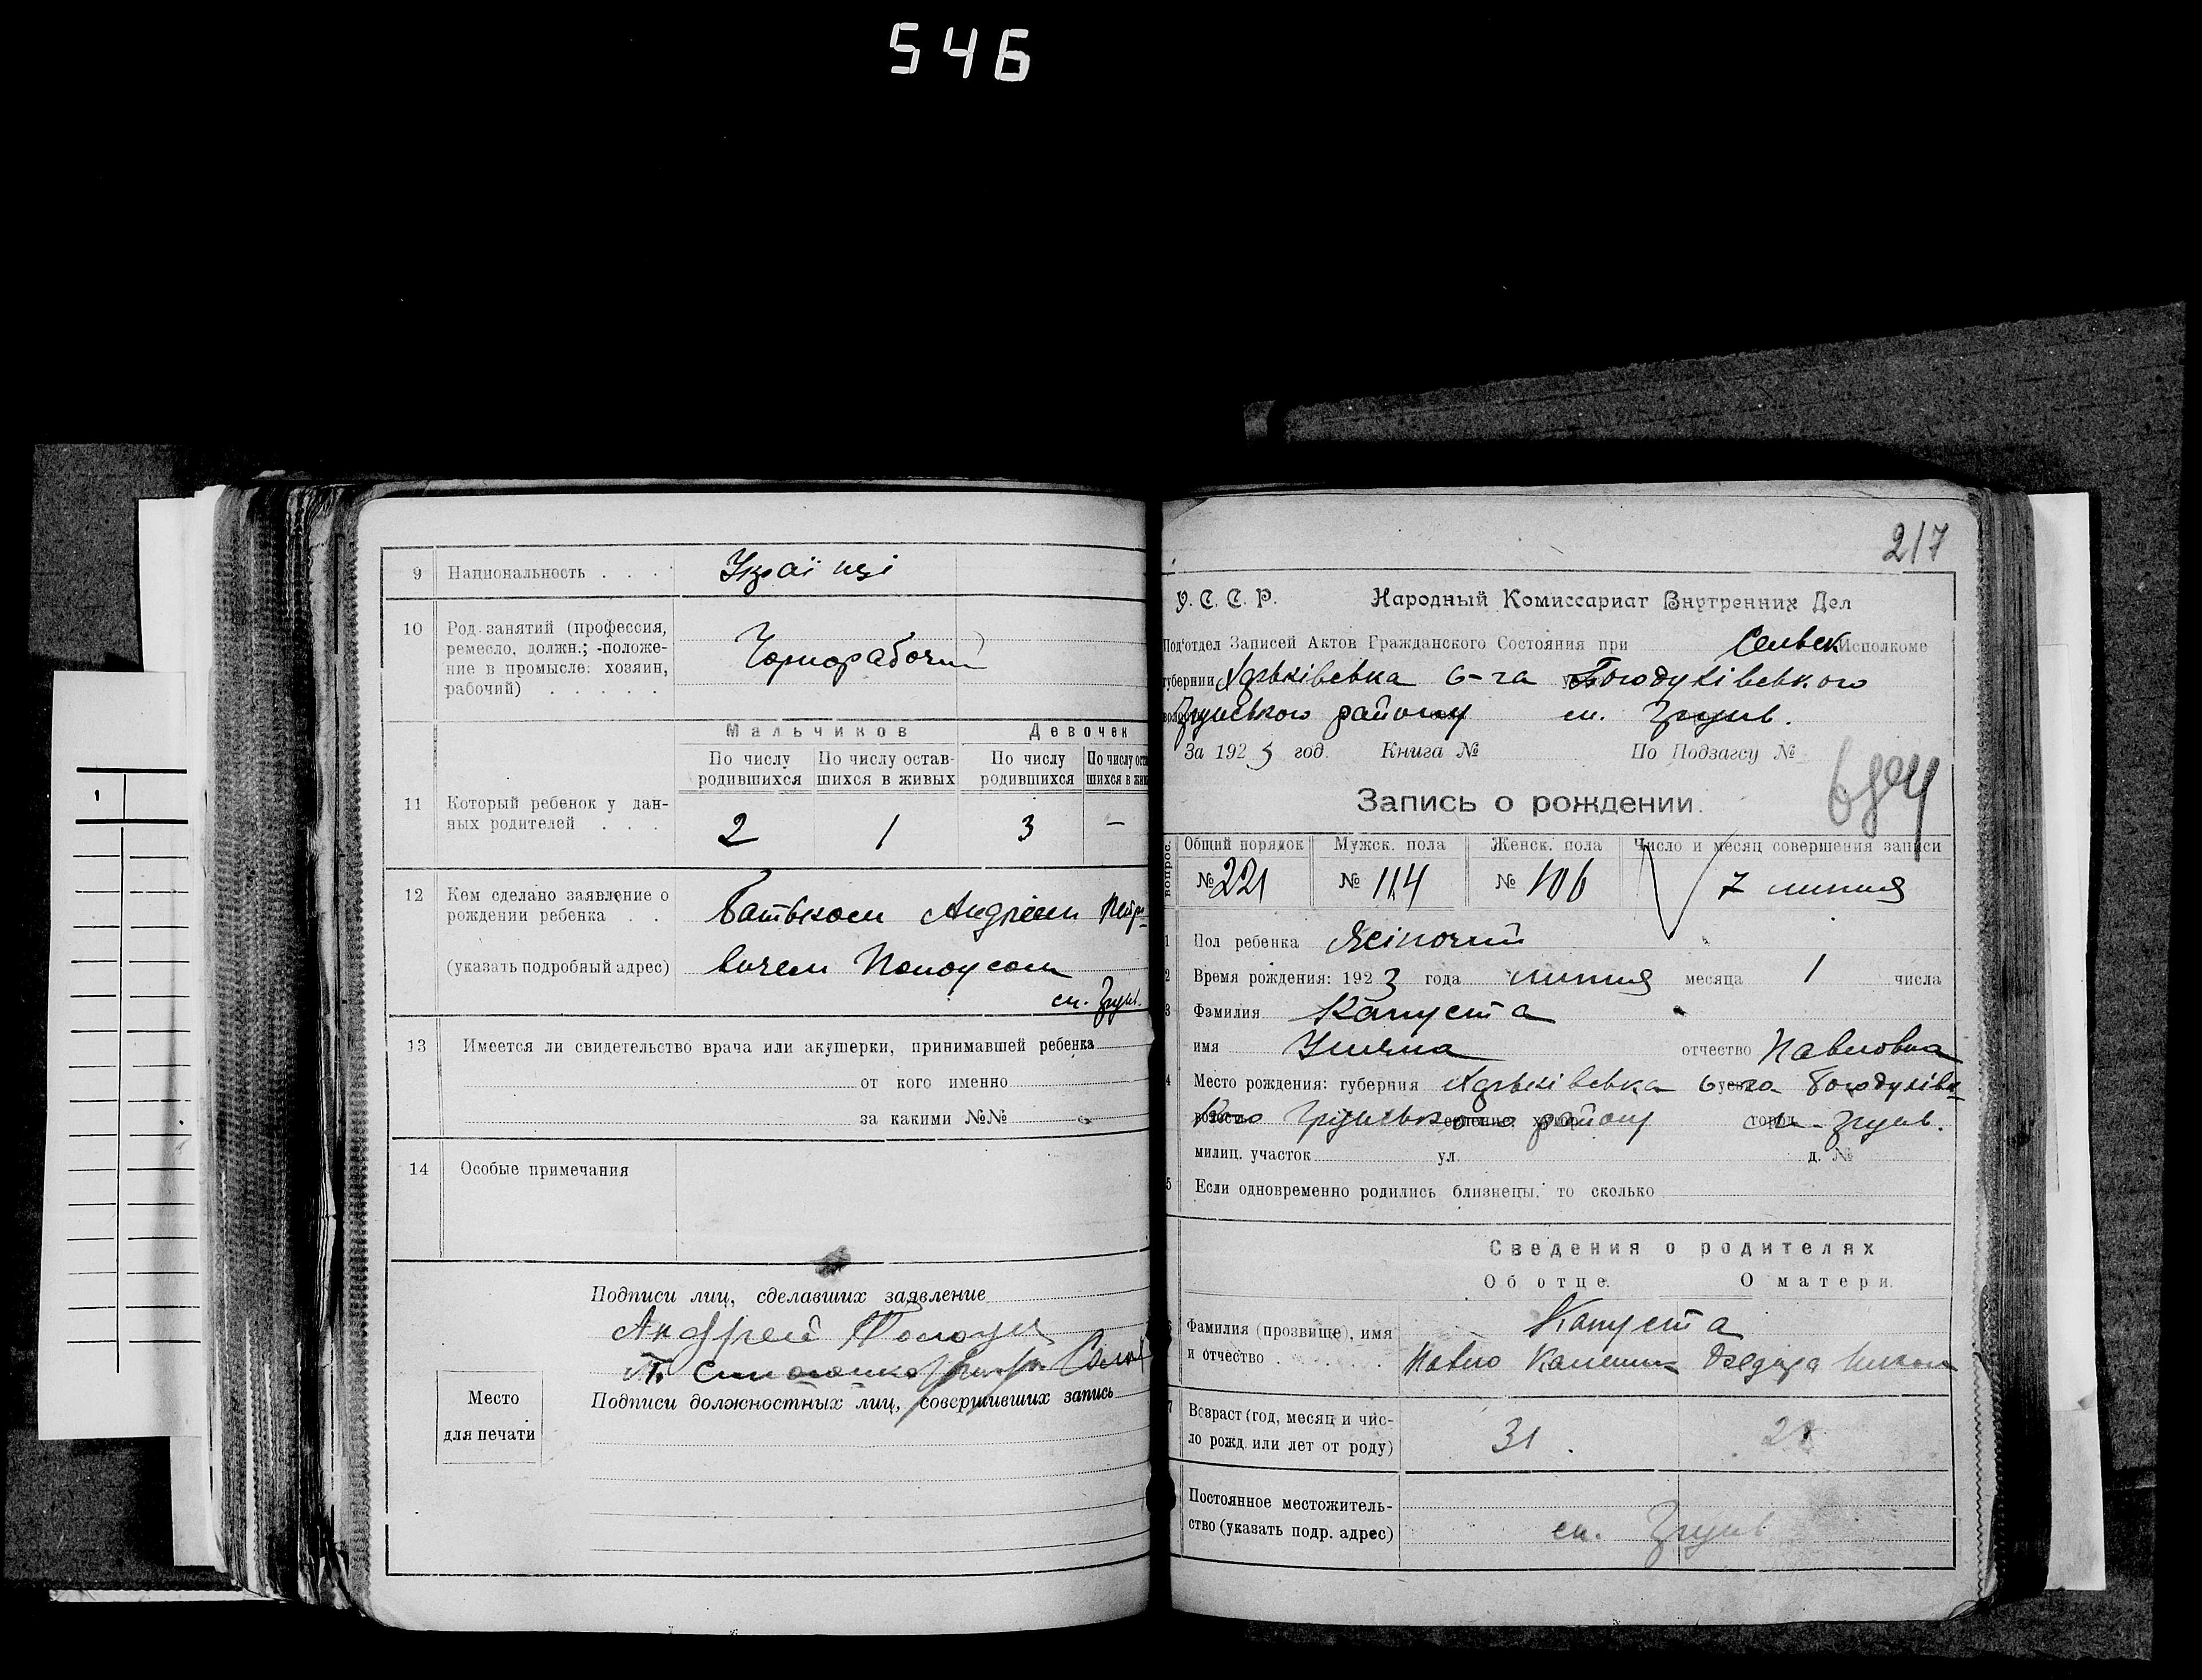 546
9 Национальность . . . Українці
10 Род занятий (профессия,
ремесло, должн.; -положе-
ние в промысле: хозяин,
рабочий) . . . . . .
Чорнорабочий
Мальчиков Девочек
По числу родившихся По числу остав-шихся в живых По числу родившихся По числу
11 Который ребенок у дан-
ных родителей . . .
2 1 3 —
12 Кем сделано заявление о
рождении ребенка . .
Батьком Андрієм Петро-
(указать подробный адрес) вичем
см. Грунь.
13 Имеется ли свидетельство врача или акушерки, принимавшей ребенка
от кого именно
за какими №№
14 Особые примечания
Подписи лиц, сделавших заявление
Андрей
Подписи должностных лиц, совершивших запись
Место
для печати
217
У. С. С. Р. Народный Комиссариат Внутренних Дел
Под'отдел Записей Актов Гражданского Состояния при Сельвик Исполкоме
губернии Харьківська г-га Богодухівського
Грунського району см. Грунь.
За 1923 год. Книга № По Подзагсу №
Запись о рождении.
Общий порядок Мужск. пола Женск. пола Число и месяц совершения записи
№ 221 № 114 № 106 7 липня
1 Пол ребенка Жіночий
2 Время рождения: 1923 года липня месяца 1 числа
3 Фамилия Капуста
имя отчество Павловна
4 Место рождения: губерния Харьківська Богодухівсь-
Грунського району см. Грунь.
милиц. участок ул. д. №
5 Если одновременно родились близнецы, то сколько
Сведения о родителях
Об отце. О матери.
Капуста
Фамилия (прозвище), имя
и отчество . . . . . Павло
7 Возраст (год, месяц и чис-
ло рожд. или лет от роду) 31.
Постоянное местожитель-
ство (указать подр. адрес) см. Грунь